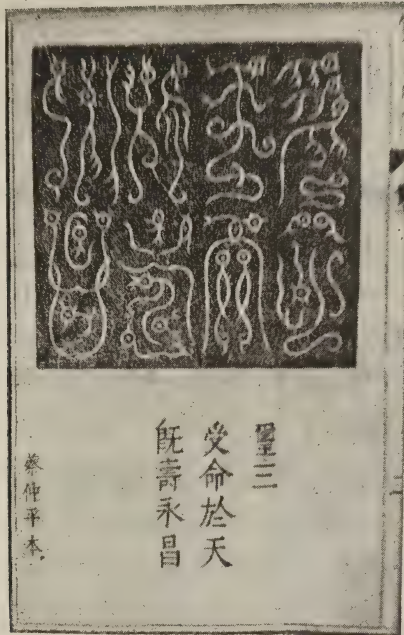 璽三
受命於天
既壽永昌
蔡仲平本